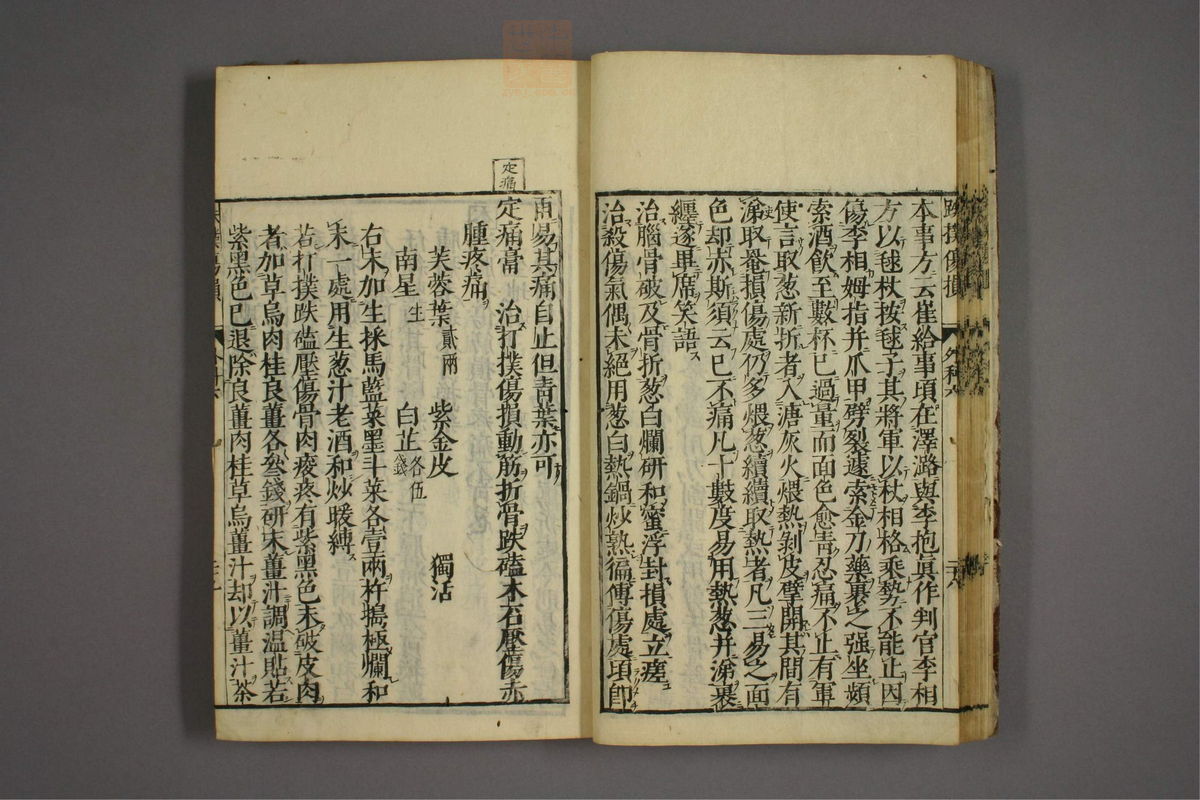 跌撲傷損
外科六
本事方云崔給事頃在澤潞與李抱眞作判官李相
方以毬杖按毬子其將軍以杖相格乘勢不能止因
傷李相姆指并爪甲劈裂遽索金刀藥裹之强坐頻
索酒飮至數杯已過量而面色愈靑忍痛不止有軍
使言取葱新折者入溏灰火煨熱剝皮擘開其間有
涕取罨損傷處仍多煨葱續續取熱者凡三易之面
色却赤斯須云已不痛凡十數度易用熱葱并涕裹
纏遂畢席笑語
治腦骨破及骨折葱白爛研和蜜浮封損處立瘥
治殺傷氣偶未絕用葱白熱鍋炒熟徧傅傷處頃卽
再易其痛自止但靑葉亦可
定痛
定痛膏 治打撲傷損動筋折骨跌磕木石壓傷赤
腫疼痛
芙蓉葉貳兩 紫金皮 獨活
南星生 白芷各伍錢
右末加生採馬藍菜墨斗菜各壹兩杵搗極爛和
末一處用生葱汁老酒和炒暖縛
若打撲跌磕壓傷骨肉痠疼有紫黑色未破皮肉
者加草烏肉桂良薑各叁錢硏末薑汁調溫貼若
紫黑色已退除良薑肉桂草烏薑汁却以薑汁茶